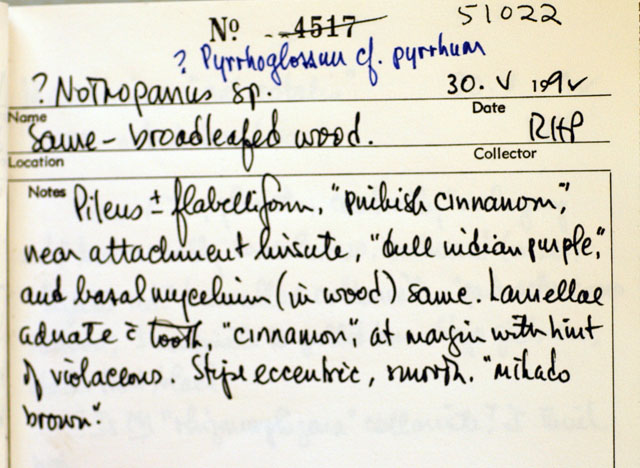 51022
No 4517
? Pyrrhoglossum cf. pyrrhum
? Nothopanus sp. 30. V 199
Name Date
Same - broadleafed wood. RHP
Location Collector
Notes Pileus ± flabelliform, "pinkish cinnamon",
near attachment hirsute, "dull indian purple",
and basal mycelium (in wood) same. Lamellae
adnate c̄ tooth, "cinnamon", at margin with hint
of violaceous. Stipe eccentric, smooth. "mikado
brown".